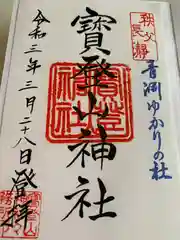 秩父
長瀞
青淵ゆかりの社
寳登山神社
令和三年三月二十八日
登拝